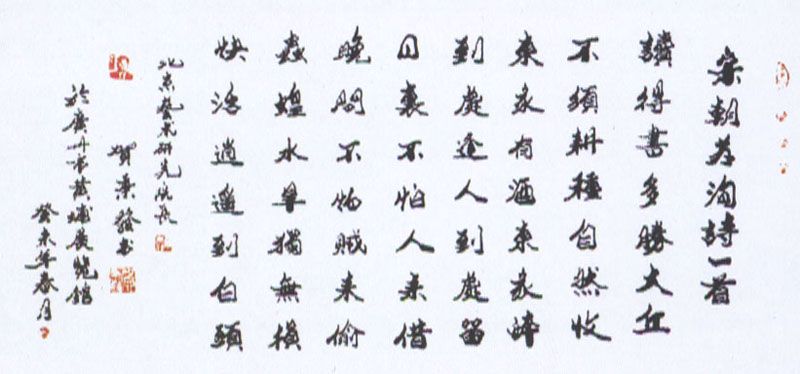 宋朝苏洵詩一首
讀得書多勝大丘
不須耕種自然收
東家有酒東家醉
到處逢人到處留
日裏不怕人來借
晚間不怕賊來偷
蟲蝗水旱獨無損
快活逍遙到白頭
北京藝术研究院長
贺發书
於廣州市黄埔展覽館
癸未年春月